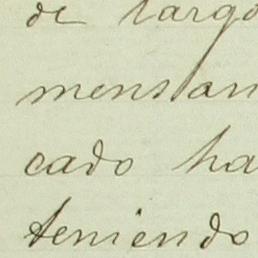 de largo
mensan
cado ha
teniendo